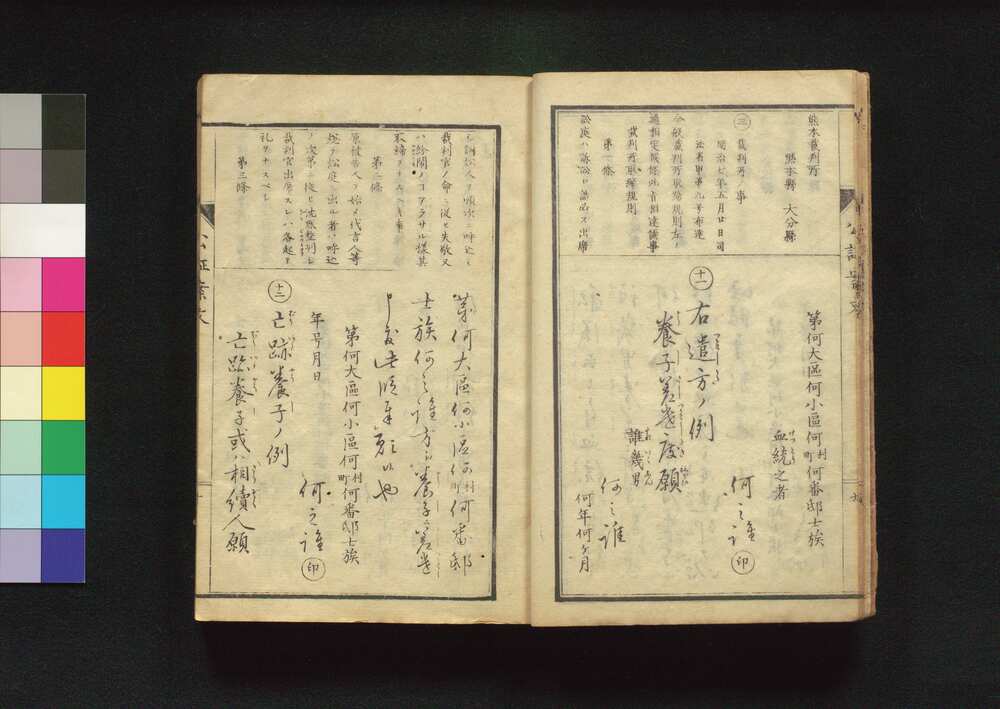 熊本裁判所
熊本縣 大分縣
㊂ 裁判所ノ事
明治七年五月廿日司
法省甲第九号布達
今般裁判所取締規則左ノ
通相定候條此旨相達候事
裁判所取締規則
第一條
訟庭ハ訴訟ヲ審品ス出席
第何大區何小區何村町何番邸士族
血統之者
何之誰 印
十一 右遣方ノ例
養子差遣度願
誰幾男
何之誰
何年何ヶ月
裁判官ノ命ニ從ヒ失敬又
第二條
原被告人ヲ始メ代言人等
總テ訟庭ニ出ル者ハ呼込
裁判官出席スレハ各起テ
礼ヲナスベシ
第三條
第何大區何小區何村町何番邸
士族何之誰方に養子差遣
申度此段奉願候也
第何大區何小區何村町何番邸士族
年号月日
何之誰 印
十二 亡跡養子ノ例
亡跡養子或ハ相續人願